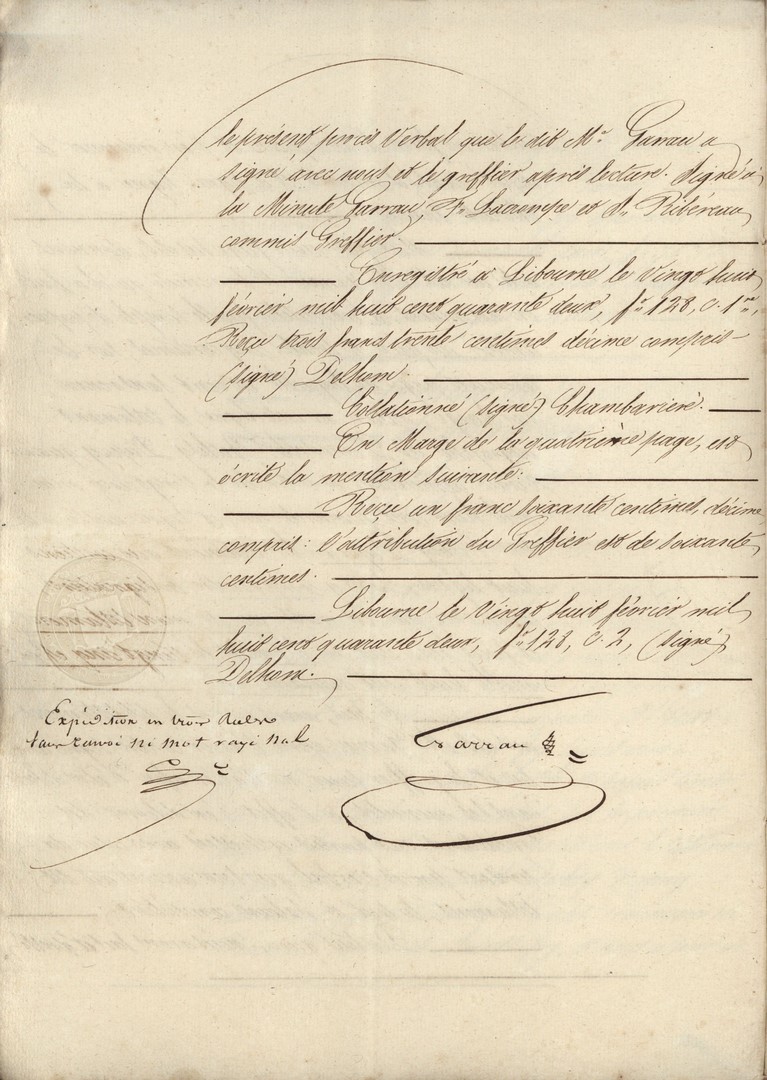 le présent procès Verbal que le dit Me. Garrau a
signé avec nous et le greffier après lecture. Signé à
la Minute Garrau, F. Lacompe et
commis Greffier.
Enregistré à Libourne le Vingt huit
février mil huit cent quarante deux, fo. 128, c. 1re,
Reçu trois francs trente centimes décime compris
(signé) Delhom.
Collationné (signé) Chambarière.
En Marge de la quatrième page, est
écrite la mention suivante:
Reçu un franc soixante centimes, décime
compris: l'attribution du Greffier est de soixante
centimes.
Libourne le Vingt huit février mil
huit cent quarante deux, fo. 128, c. 2, (signé)
Delhom.
Expédition en trois Roles
sans renvoi ni mot rayé nul
Garrau